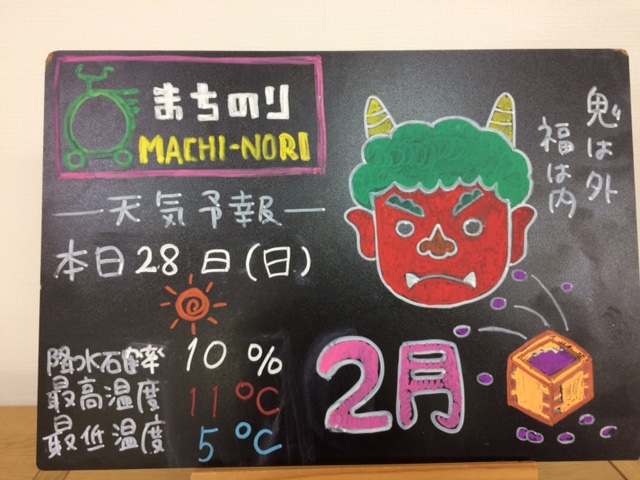 まちのり
MACHI-NORI
天気予報
本日28日(日)
降水確率 10%
最高温度 11℃
最低温度 5℃
鬼は外
福は内
2月